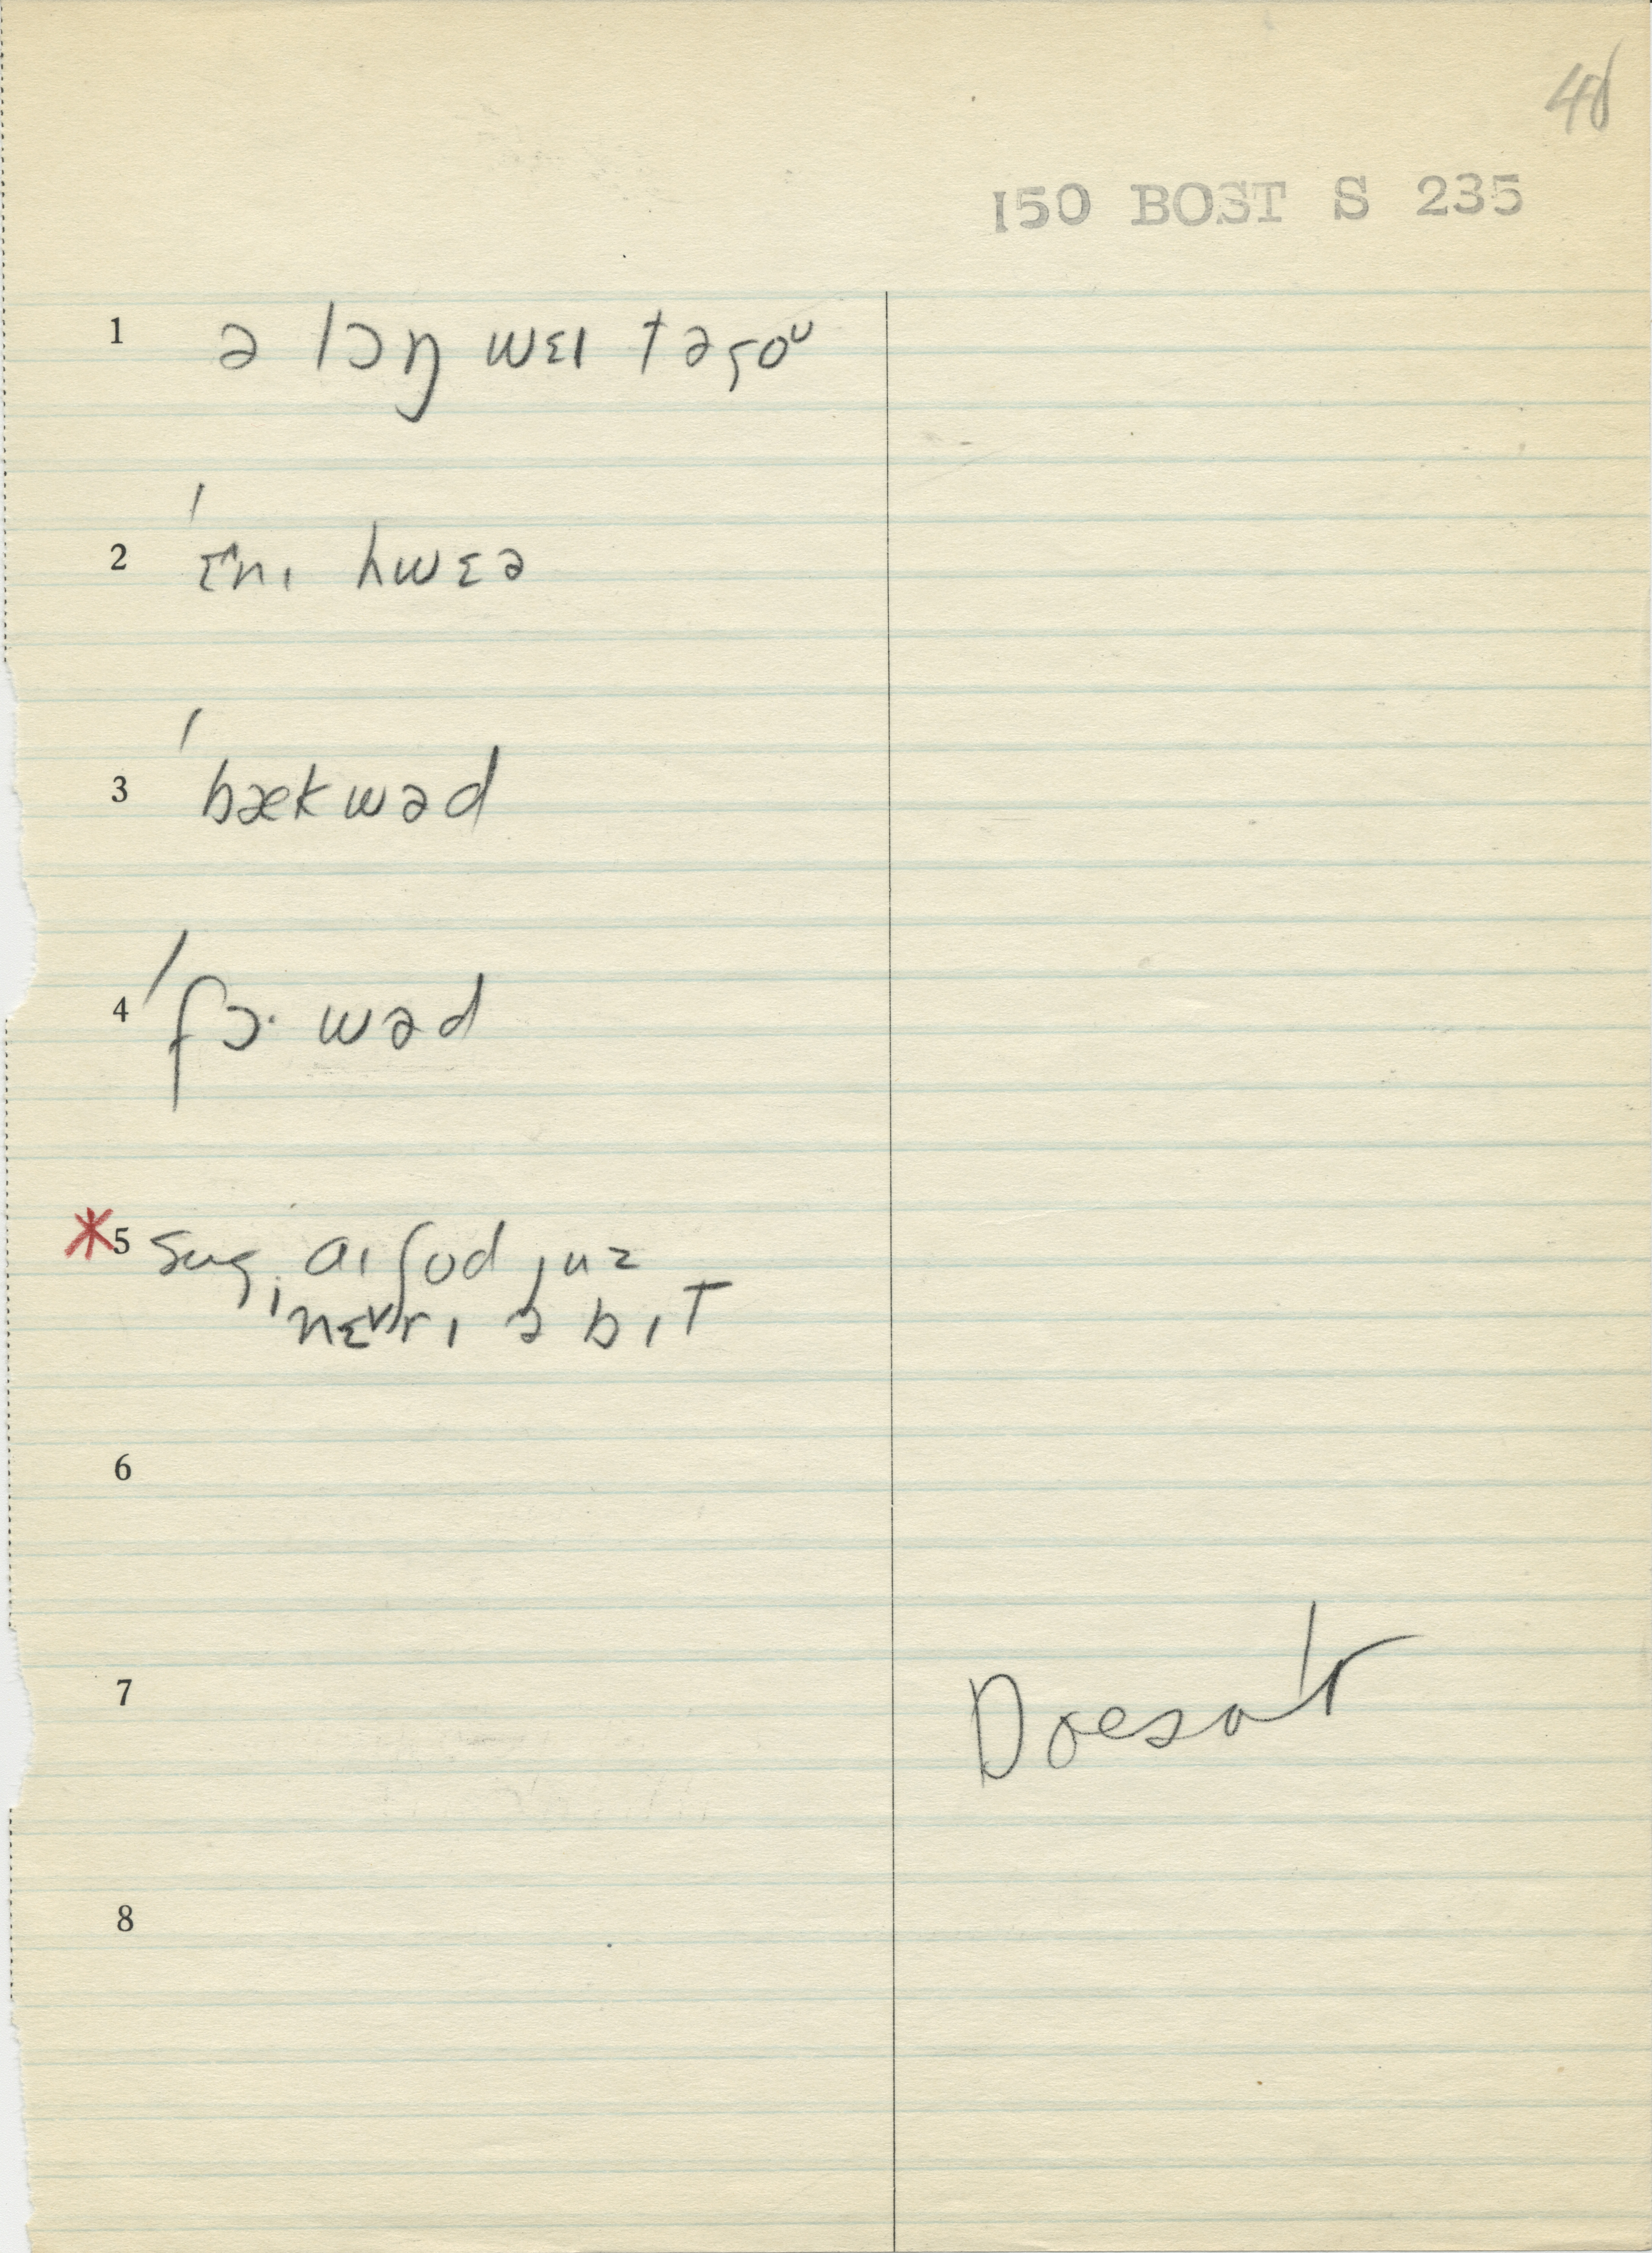 48
150 BOST S 235
1 ə lɔŋ wɛɪ təɡoᵁ
2 ˈɛnɪ hwɛə
3 ˈbækwəd
4 ˈfɔ· wəd
*5 aɪ ʃʊd juz
ˈnɛvrɪ ə bɪt
6
7 Doesn't
8